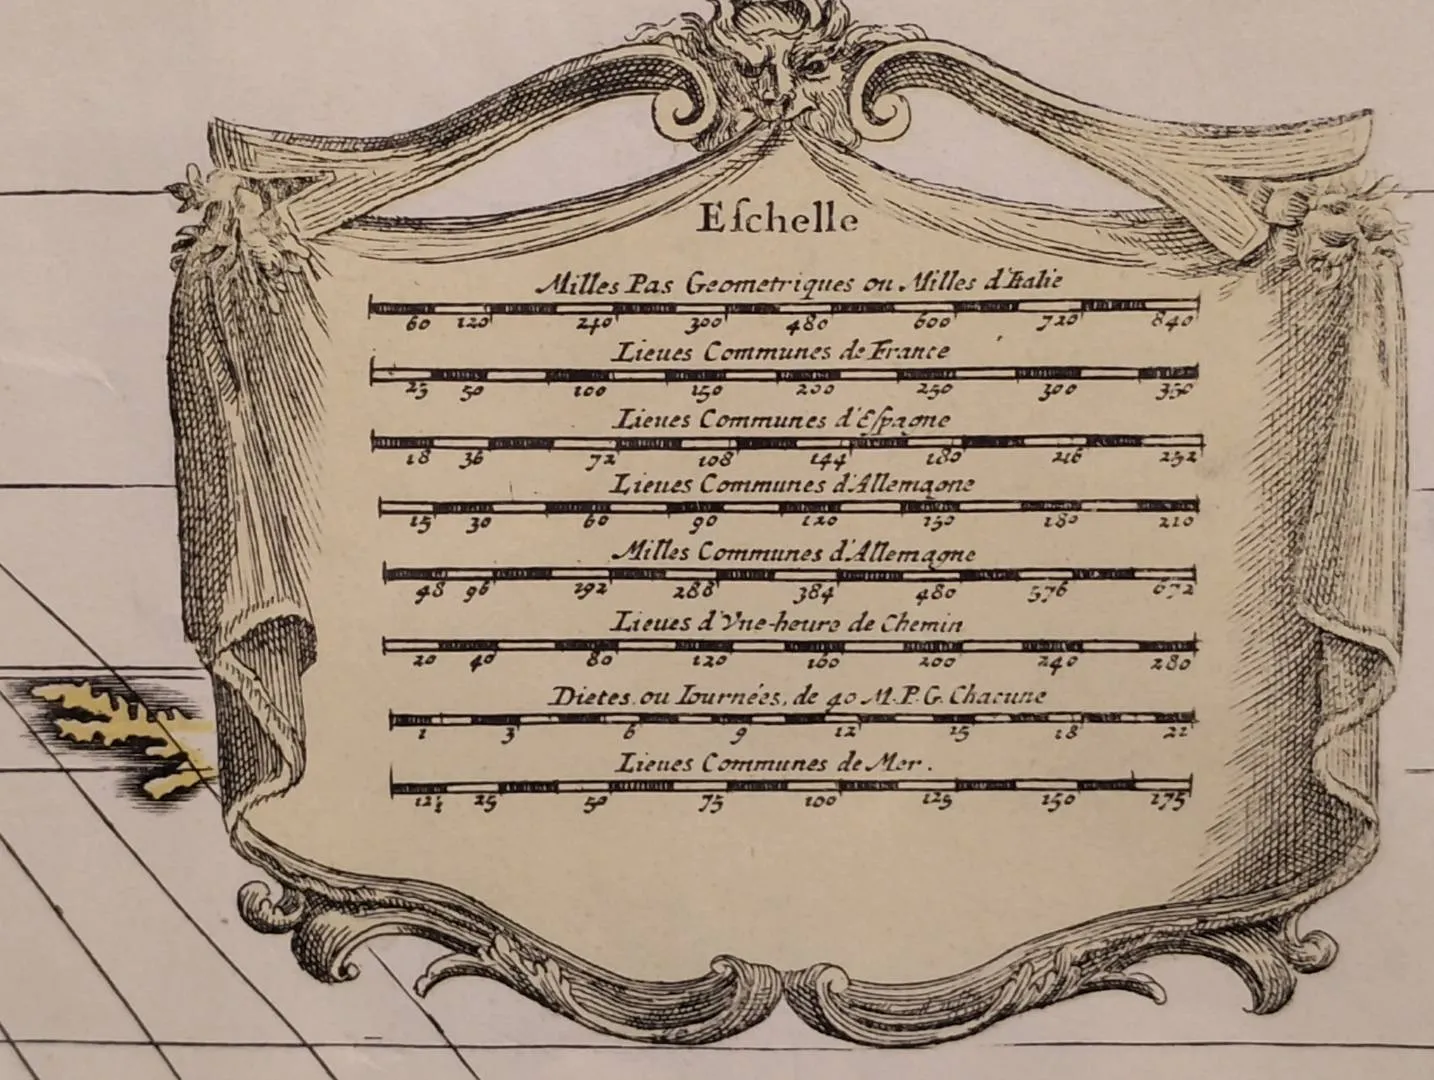 Eſchelle
Milles Pas Geometriques ou Milles d'Italie
60 120 240 300 480 600 720 840
Lieues Communes de France
25 50 100 150 200 250 300 350
Lieues Communes d'Eſpagne
18 36 72 108 144 180 216 252
Lieues Communes d'Allemagne
15 30 60 90 120 150 180 210
Milles Communes d'Allemagne
48 96 192 288 384 480 576 672
Lieues d'Vne-heure de Chemin
20 40 80 120 160 200 240 280
Dietes, ou Iournées, de 40 M.P.G. Chacune
1 3 6 9 12 15 18 21
Lieues Communes de Mer.
12½ 25 50 75 100 125 150 175